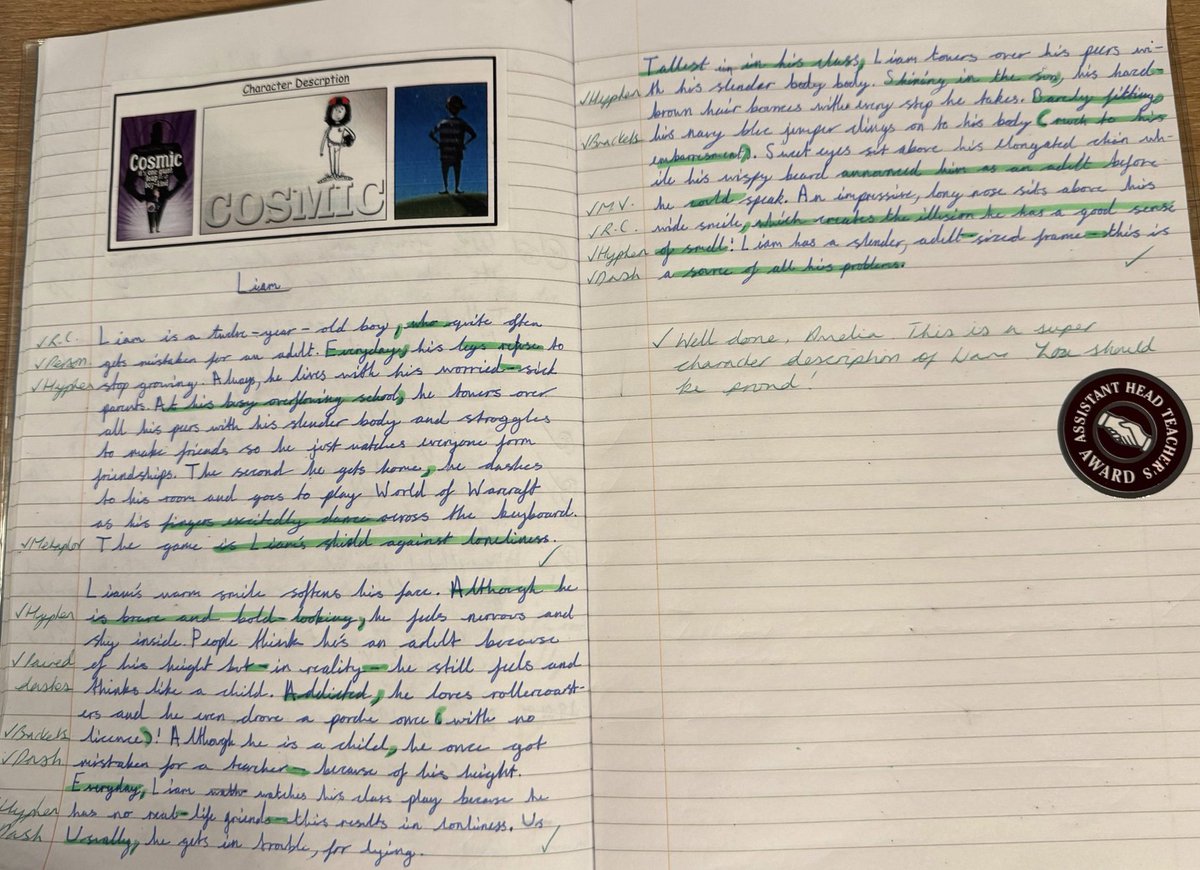 Character Descrption
Cosmic
it's one giant
leap for
boy-kind
COSMIC
Liam
✓R.C. Liam is a twelve-year-old boy, who quite often
✓Person. gets mistaken for an adult. Everyday, his legs refuse to
✓Hyphen stop growing. Always, he lives with his worried-sick
parents. At his busy overflowing school, he towers over
all his peers with his slender body and struggles
to make friends so he just watches everyone form
friendships. The second he gets home, he dashes
to his room and goes to play World of Warcraft
as his fingers excitedly dance across the keyboard.
✓Metaphor The game is Liam's shield against loneliness.
✓
Liam's warm smile softens his face. Although he
✓Hyphen is brave and bold-looking, he feels nervous and
shy inside. People think he's an adult because
✓Paired of his height but-in reality-he still feels and
dashes thinks like a child. Addicted, he loves rollercoast-
ers and he even drove a porche once (with no
✓Brackets licence)! Although he is a child, he once got
✓Dash mistaken for a teacher - because of his height.
Everyday, Liam watches his class play because he
Hyphen has no real-life friends-this results in lonliness. Us
Dash Usually, he gets in trouble, for lying.
✓
Tallest in in his class, Liam towers over his peers wi-
✓Hyphen th his slender body body. Shining in the sun, his hazel-
brown hair bounces with every step he takes. Barely fitting,
✓Brackets his navy blue jumper clings on to his body (much to his
embarrisment). Sweet eyes sit above his elongated chin wh-
ile his wispy beard announced him as an adult before
✓M.V. he could speak. An impressive, long nose sits above his
✓R.C. wide smile, which creates the illusion he has a good sense
✓Hyphen of smell! Liam has a slender, adult-sized frame-this is
✓Dash a source of all his problems.
✓
✓ Well done, Amelia This is a super
character description of Liam You should
be proud!
ASSISTANT HEAD TEACHER'S
AWARD